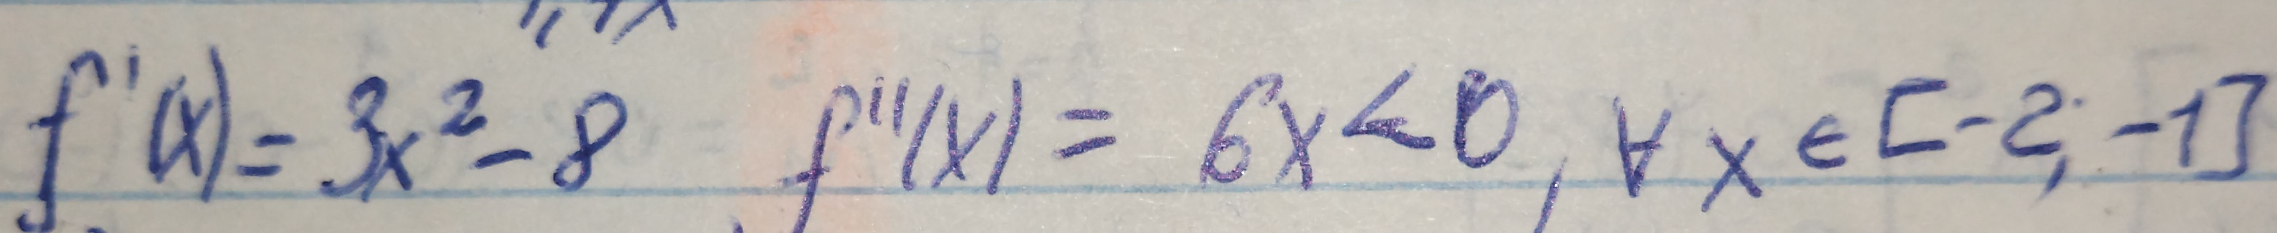 f'(x) = 3x² - 8 , f''(x) = 6x < 0, ∀ x ∈ [-2; -1]